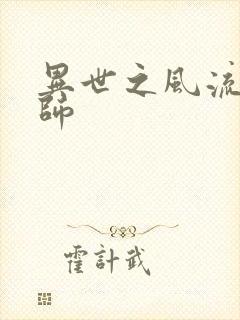 異世之風流
師
霍計武